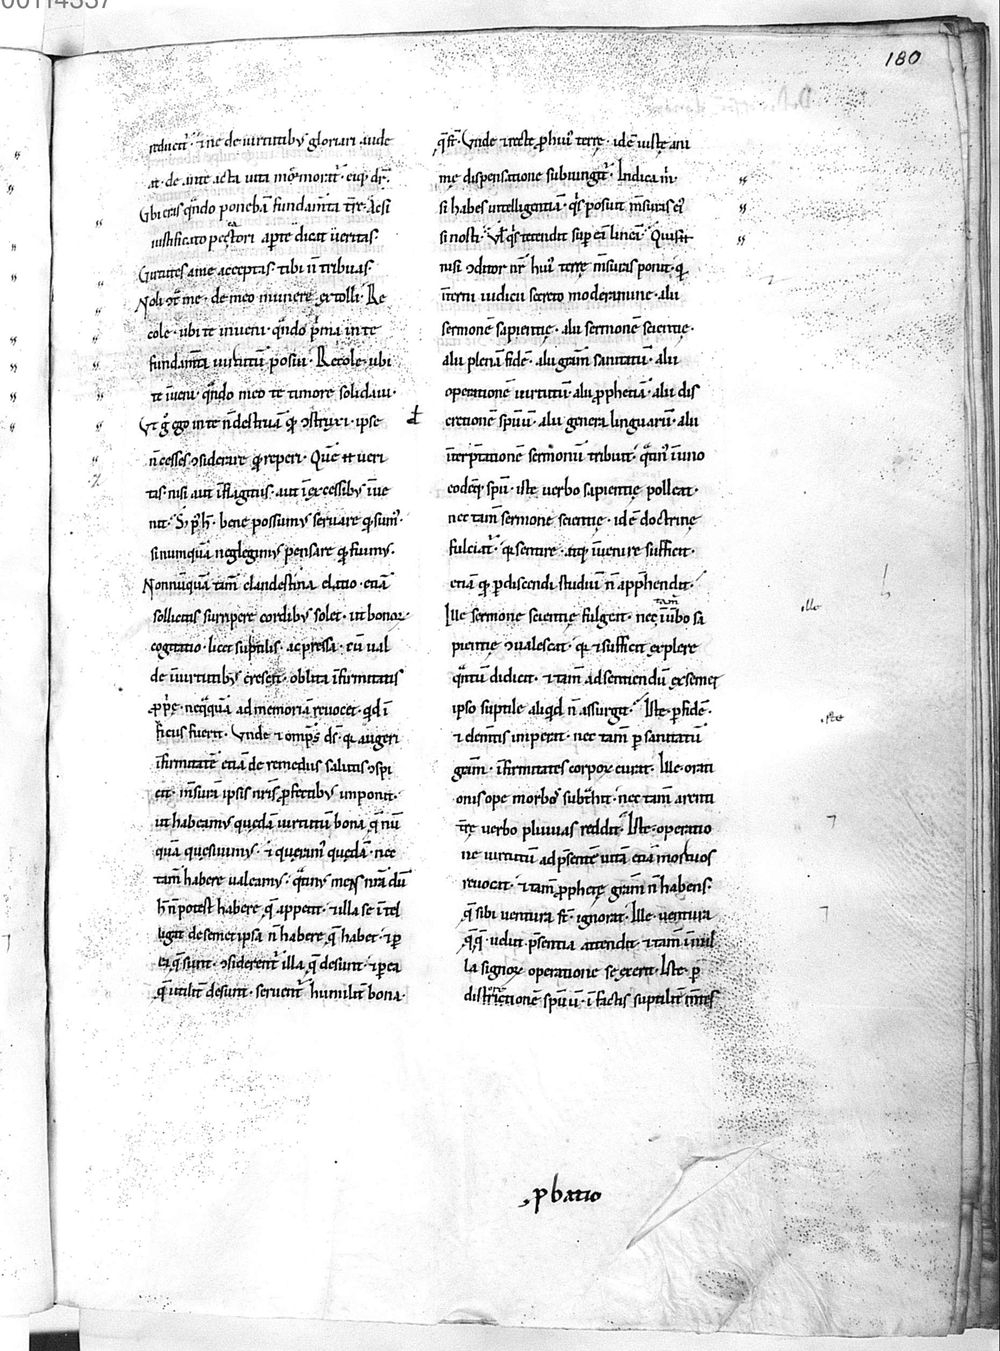 00114337
180
reducit͛· & ne de uirtutibꝰ gloriari aude
at· de ante acta uita memorat͛· eiq; dr̄·
Vbi eras qn̄do ponebā fundam̄ta tr̄e· Ac si
iustificato peccatori aꝑte dicat ueritas·
Virtutes a me acceptas· tibi n̄ tribuas·
Noli ɔt̄ me· de meo munere extolli· Re
cole· ubi te inueni· qn̄do prima in te
fundam̄ta uirtutū posui· Recole· ubi
te īueni· qn̄do meo te timore solidaui·
Vt ḡ ego in te n̄ destruā qđ ɔstruxi· ipse
n̄ cesses ɔsiderare qđ reperi· Quē eī ueri
tas· nisi aut ī flagitiis· aut ī excessibꝰ īue
nit· S; p̄ h̄· bene possumꝰ seruare qđ sumꝰ·
si numquā neglegimꝰ pensare qđ fuimꝰ·
Nonnūquā tam̄ clandestina elatio· etiā
sollicitis surripere cordibꝰ solet· ut bonoꝝ
cogitatio· licet subtilis· ac pressa· cū ual
de ī uirtutibꝰ crescit· oblita īfirmitatis
ꝓprie· neq̄quā ad memoriā reuocet· qđ ī
ficius fuerit· Vnde & omp̄s d̄s· q̄ augeri
īfirmitatē etiā de remediis salutis ɔspi
cit· m̄surā ipsis nr̄is ꝓfectibꝰ imponit·
ut habeamꝰ quędā uirtutū bona q̄ nū
quā quesiuimꝰ· & querim̄ quędā· nec
tam̄ habere ualeamꝰ· q̄tinꝰ mens nr̄a dū
h̄ n̄ potest habere q̄ appetit· & illa se ītel
ligat de semetipsa n̄ habere q̄ habet· & ꝑ
ea q̄ sunt· ɔsiderent͛ illa q̄ desunt· & ꝑ ea
q̄ utilit̄ desunt· seruent͛ humilit̄ bona·
q̄ st̄· Vnde & recte ꝓ huiꝰ terrę· idē iustę ani
mę dispensatione subiungit͛· Indica m̄·
si habes intelligentiā· q̄s posuit m̄suras eiꝰ
si nosti· Vl̄ q̄s tetendit suꝑ eā lineā· Quis ē
nisi ɔditor nr̄ huiꝰ terrę m̄suras ponit· q̄
īterni iudicii secreto moderamine· alii
sermonē sapientię· alii sermonē scientię·
alii plenā fidē· alii gram̄ sanitatū· alii
operationē uirtutū· alii ꝓphetiā· alii dis
cretionē spūū· alii genera linguarū· alii
īterp̄tationē sermonū tribuit· q̄tinꝰ ī uno
eodēq; spū· iste uerbo sapientię polleat·
nec tam̄ sermone scientię· id ē doctrinę
fulciat͛· q̄ sentire· atq; īuenire sufficit·
etiā qđ ꝑ discendi studiū n̄ app̄hendit·
Ille sermone scientię fulgeat· nec tam̄ ī ūbo sa
pientię ɔualescat· q̄ & sufficit explere
q̄ntū didicit· & tam̄ ad sentiendū ex semet
ipso suptile aliqđ n̄ assurgit· Iste ꝑ fidē·
& elem̄tis imperat· nec tam̄ ꝑ sanitatū
gram̄· īfirmitates corpoꝝ curat· Ille orati
onis ope morbos subt̄hit· nec tam̄ arenti
tr̄ę uerbo pluuias reddit· Iste operatio
ne uirtutū ad p̄sentē uitā etiā mortuos
reuocat· & tam̄ ꝓphetię gram̄ n̄ habens·
q̄ sibi uentura st̄· ignorat· Ille uentura
q̄q̄· uelut p̄sentia attendit· & tam̄ ī nul
la signoꝝ operatione se exerit· Iste ꝑ
discretionē spūū· ī factis suptilit̄ m̄tes
ille
iste
ꝓbatio